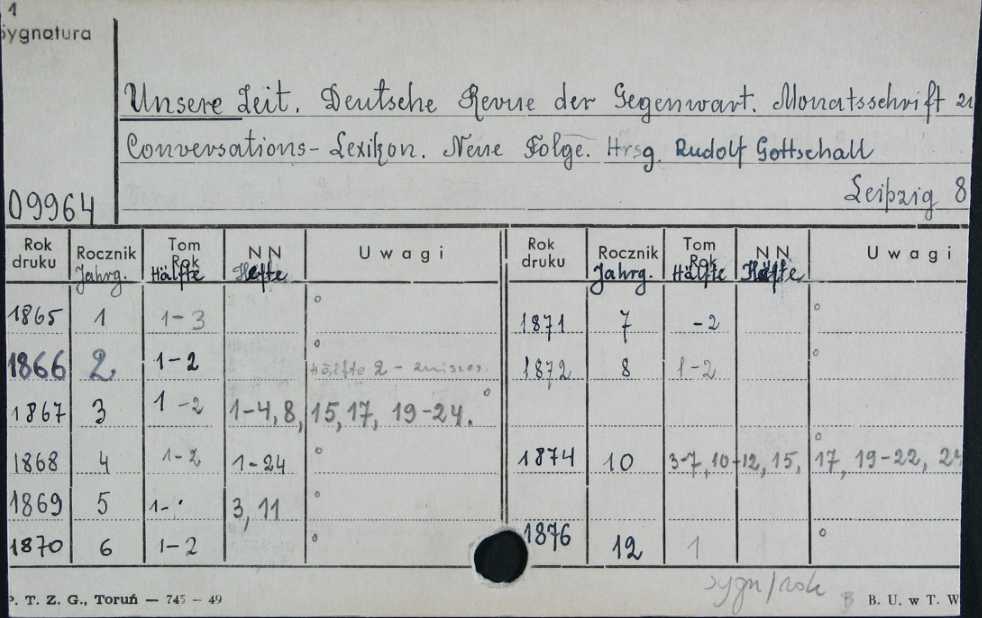 1
Sygnatura
Unsere Zeit. Deutsche Revue der Gegenwart. Monatsschrift zu
Conversations-Lexikon. Neue Folge. Hrsg. Rudolf Gottschall
Leipzig 8
09964
Rok druku Rocznik Jahrg. Tom Rok Hälfte NN Hefte Uwagi Rok druku Rocznik Jahrg. Tom Rok Hälfte NN Hefte Uwagi
1865 1 1-3 ° 1871 7 -2 °
1866 2 1-2 ° Hälfte 2 - zniszcz. 1872 8 1-2 °
1867 3 1-2 1-4, 8, 15, 17, 19-24. °
1868 4 1-2 1-24 ° 1874 10 3-7, 10-12, 15, 17, 19-22, 24 °
1869 5 1- 3, 11 °
1870 6 1-2 ° 1876 12 1 °
sygn/rok
P. T. Z. G., Toruń — 745 — 49 B B. U. w T. W